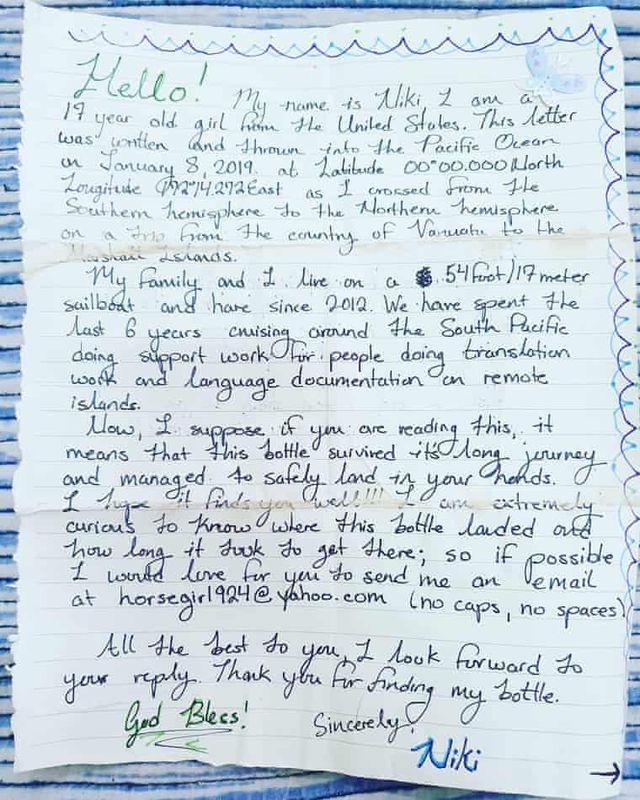 Hello!
My name is Niki, I am a
17 year old girl from the United States. This letter
was written and thrown into the Pacific Ocean
on January 8, 2019 at Latitude 00°00.000 North
Longitude East as I crossed from the
Southern hemisphere to the Northern hemisphere
on a trip from the country of Vanuatu to the
Marshall Islands.
My family and I live on a 54 foot/17 meter
sailboat and have since 2012. We have spent the
last 6 years cruising around the South Pacific
doing support work for people doing translation
work and language documentation on remote
islands.
Now, I suppose if you are reading this, it
means that this bottle survived it's long journey
and managed to safely land in your hands.
I hope it finds you well!!! I am extremely
curious to know where this bottle landed and
how long it took to get there; so if possible
I would love for you to send me an email
at horsegirl924@yahoo.com (no caps, no spaces)
All the best to you, I look forward to
your reply. Thank you for finding my bottle.
God Bless! Sincerely,
Niki